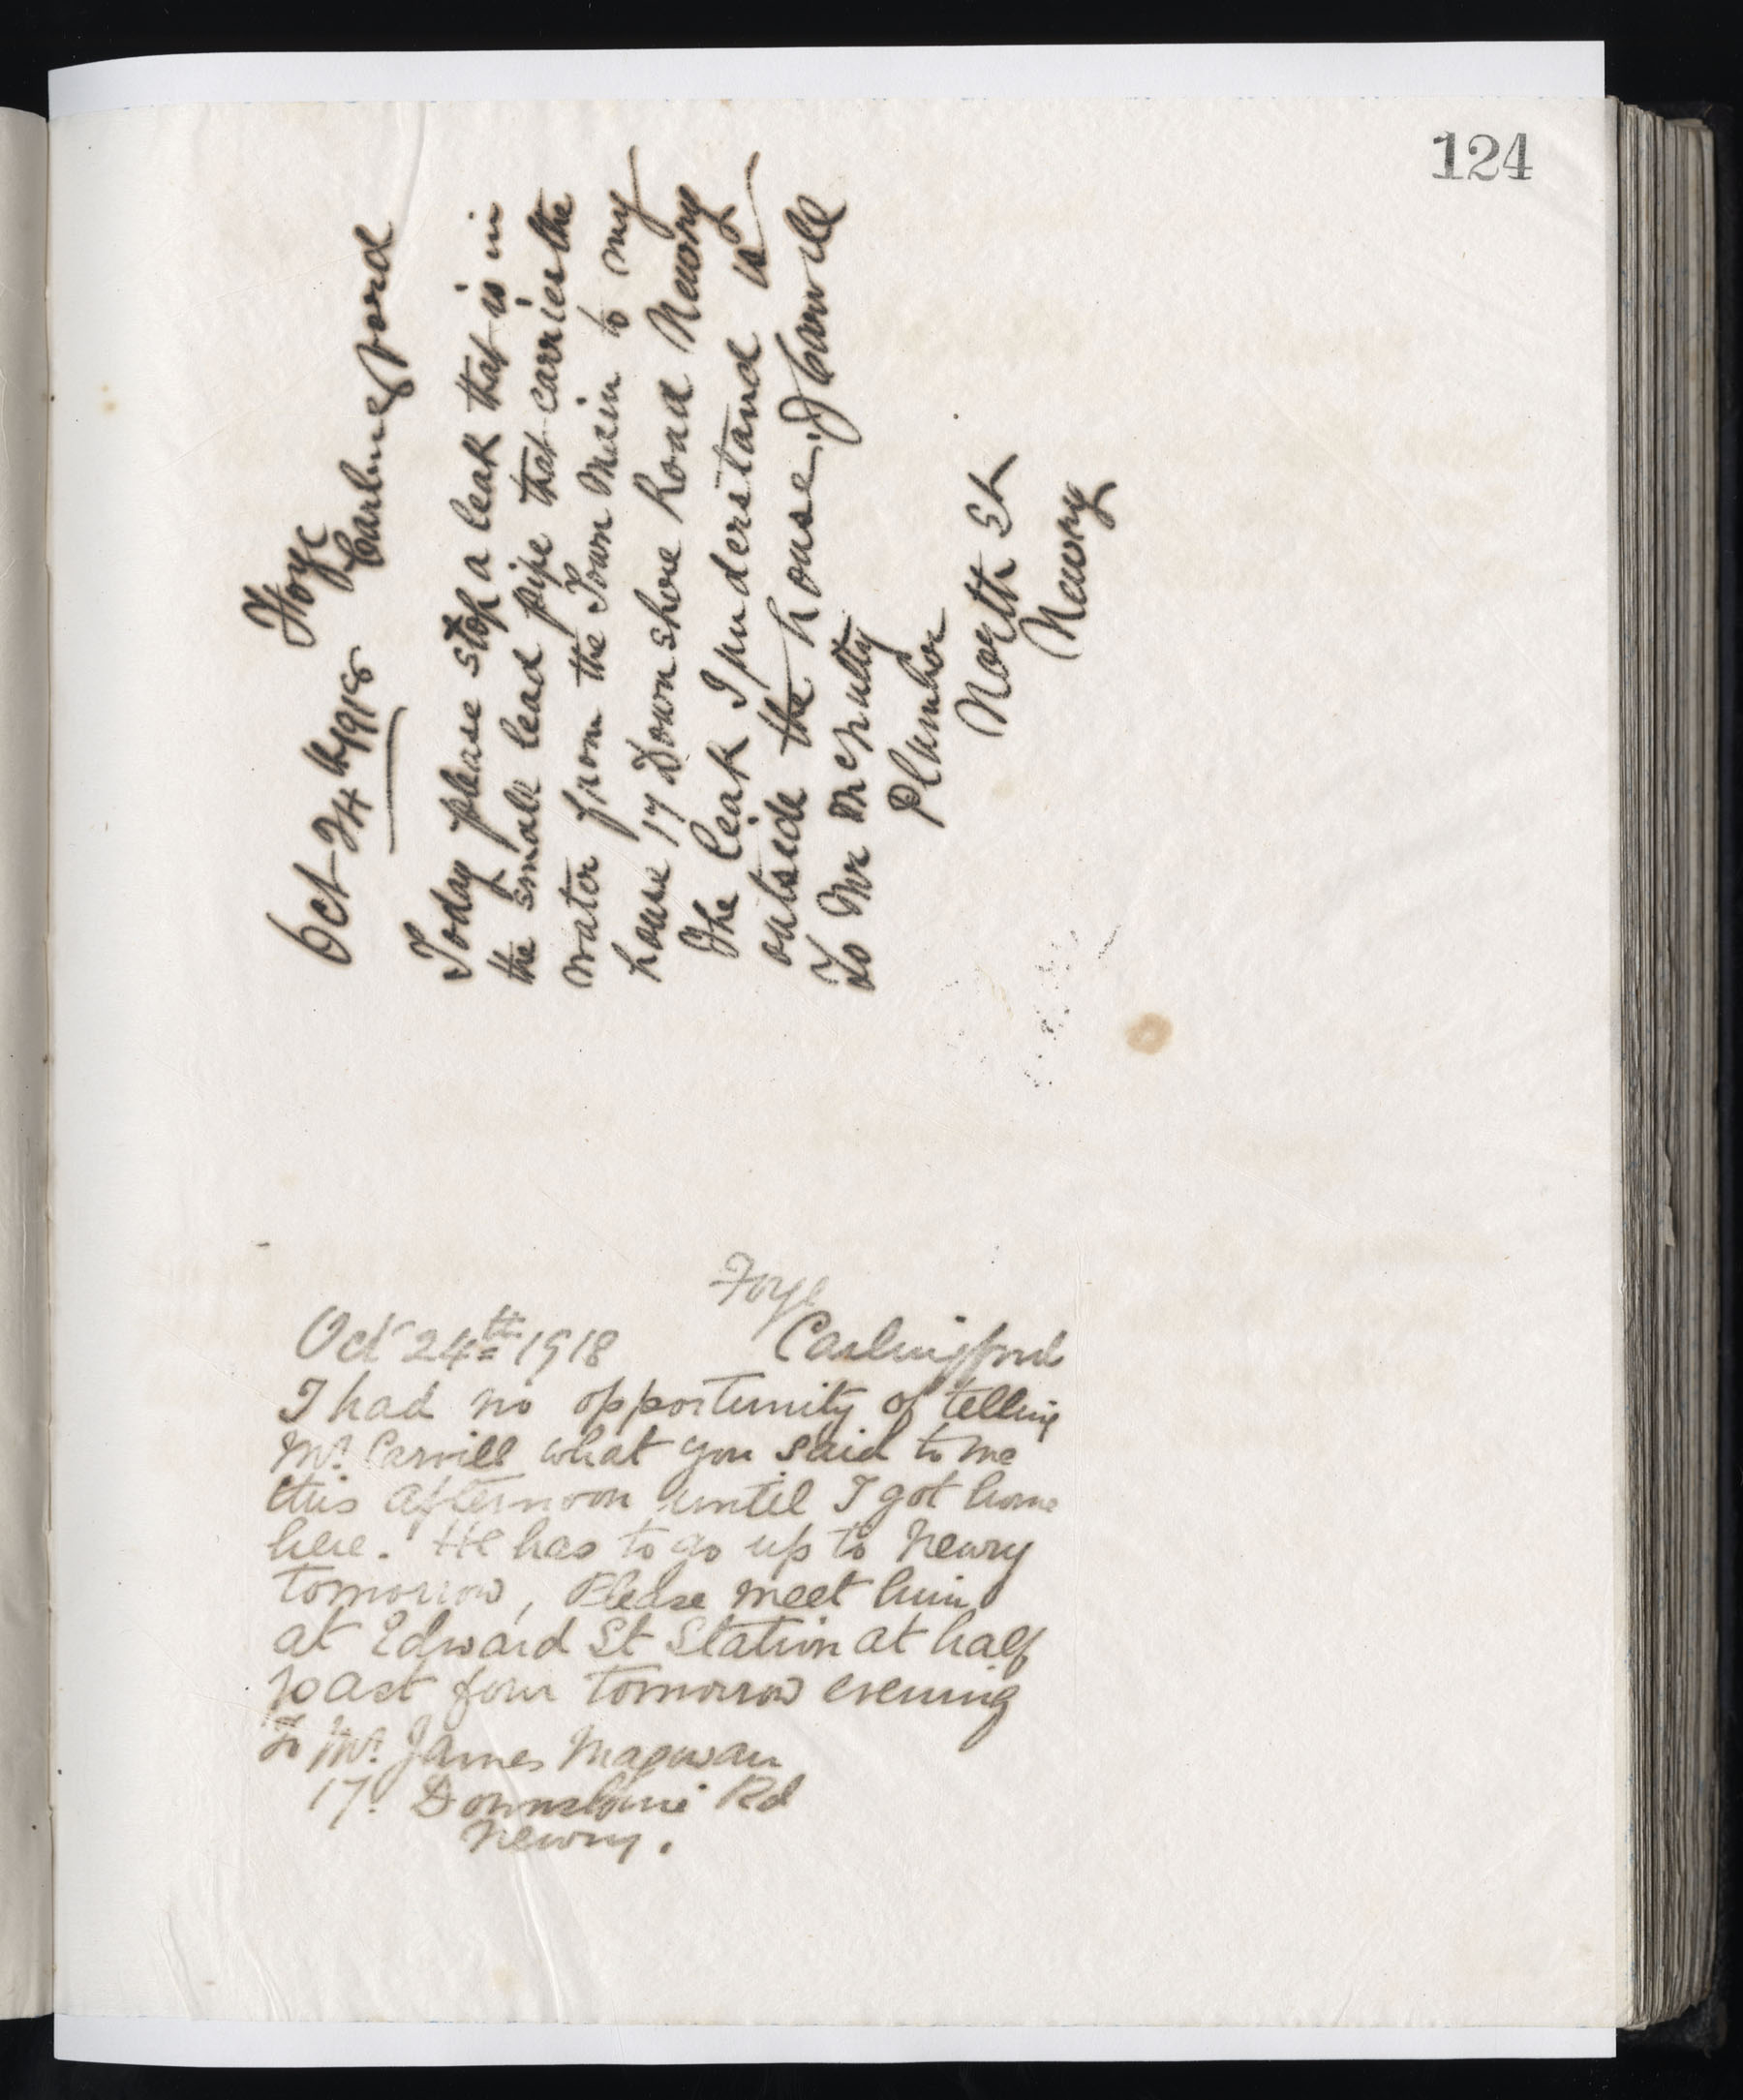 124
Foye
Oct 24th 1918 Carlingford
Today please stop a leak that is in
the small lead pipe that carries the
water from the Town Main to my
house 17 Downshire Road Newry
The leak I understand is
outside the house. J Carvill
To Mr McNulty
Plumber
North St
Newry
Foye
Oct 24th 1918 Carlingford
I had no opportunity of telling
Mr. Carvill what you said to me
this afternoon until I got home
here. He has to go up to Newry
tomorrow, Please meet him
at Edward St Station at half
past four tomorrow evening
To Mr. James Magowan
17. Downshire Rd
Newry.